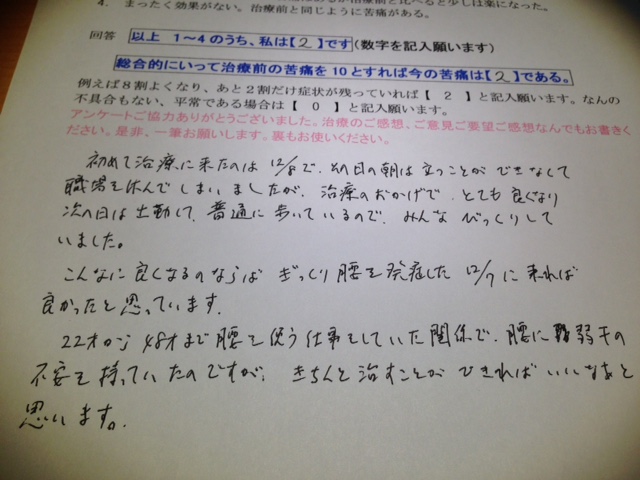 4. まったく効果がない。治療前と同じように苦痛がある。
回答 以上 1～4のうち、私は【 2 】です(数字を記入願います)
総合的にいって治療前の苦痛を10とすれば今の苦痛は【 2 】である。
例えば8割よくなり、あと2割だけ症状が残っていれば【 2 】と記入願います。なんの
不具合もない、平常である場合は【 0 】と記入願います。
アンケートご協力ありがとうございました。治療のご感想、ご意見ご要望ご感想なんでもお書きく
ださい。是非、一筆お願いします。裏もお使いください。
初めて治療に来たのは 12/8で、その日の朝は立つことができなくて
職場を休んでしまいましたが、治療のおかげで、とても良くなり
次の日は出勤して、普通に歩いているので、みんなびっくりして
いました。
こんなに良くなるのならば ぎっくり腰を発症した 12/7に来れば
良かったと思っています。
22才から48才まで腰を使う仕事をしていた関係で、腰に若干の
不安を持っていたのですが、きちんと治すことができればいいなあと
思います。